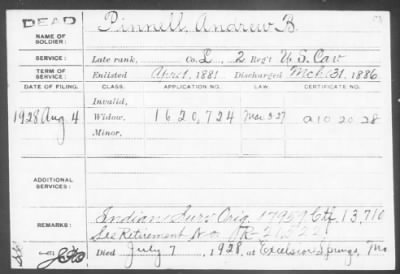 DEAD
NAME OF SOLDIER: Pinnell, Andrew B.
SERVICE: Late rank, Co. L, 2 Reg't U.S. Cav
TERM OF SERVICE: Enlisted April 1, 1881 Discharged Mch. 31, 1886
DATE OF FILING. CLASS. APPLICATION NO. LAW. CERTIFICATE NO.
Invalid,
1928 Aug 4 Widow, 1620,724 Mar 3-27 a 10 20-28
Minor,
ADDITIONAL SERVICES:
REMARKS: Indian Surv Orig. 17959 Ctf. 13,710
See Retirement No.
Died July 7, 1928, at Excelsior Springs, Mo